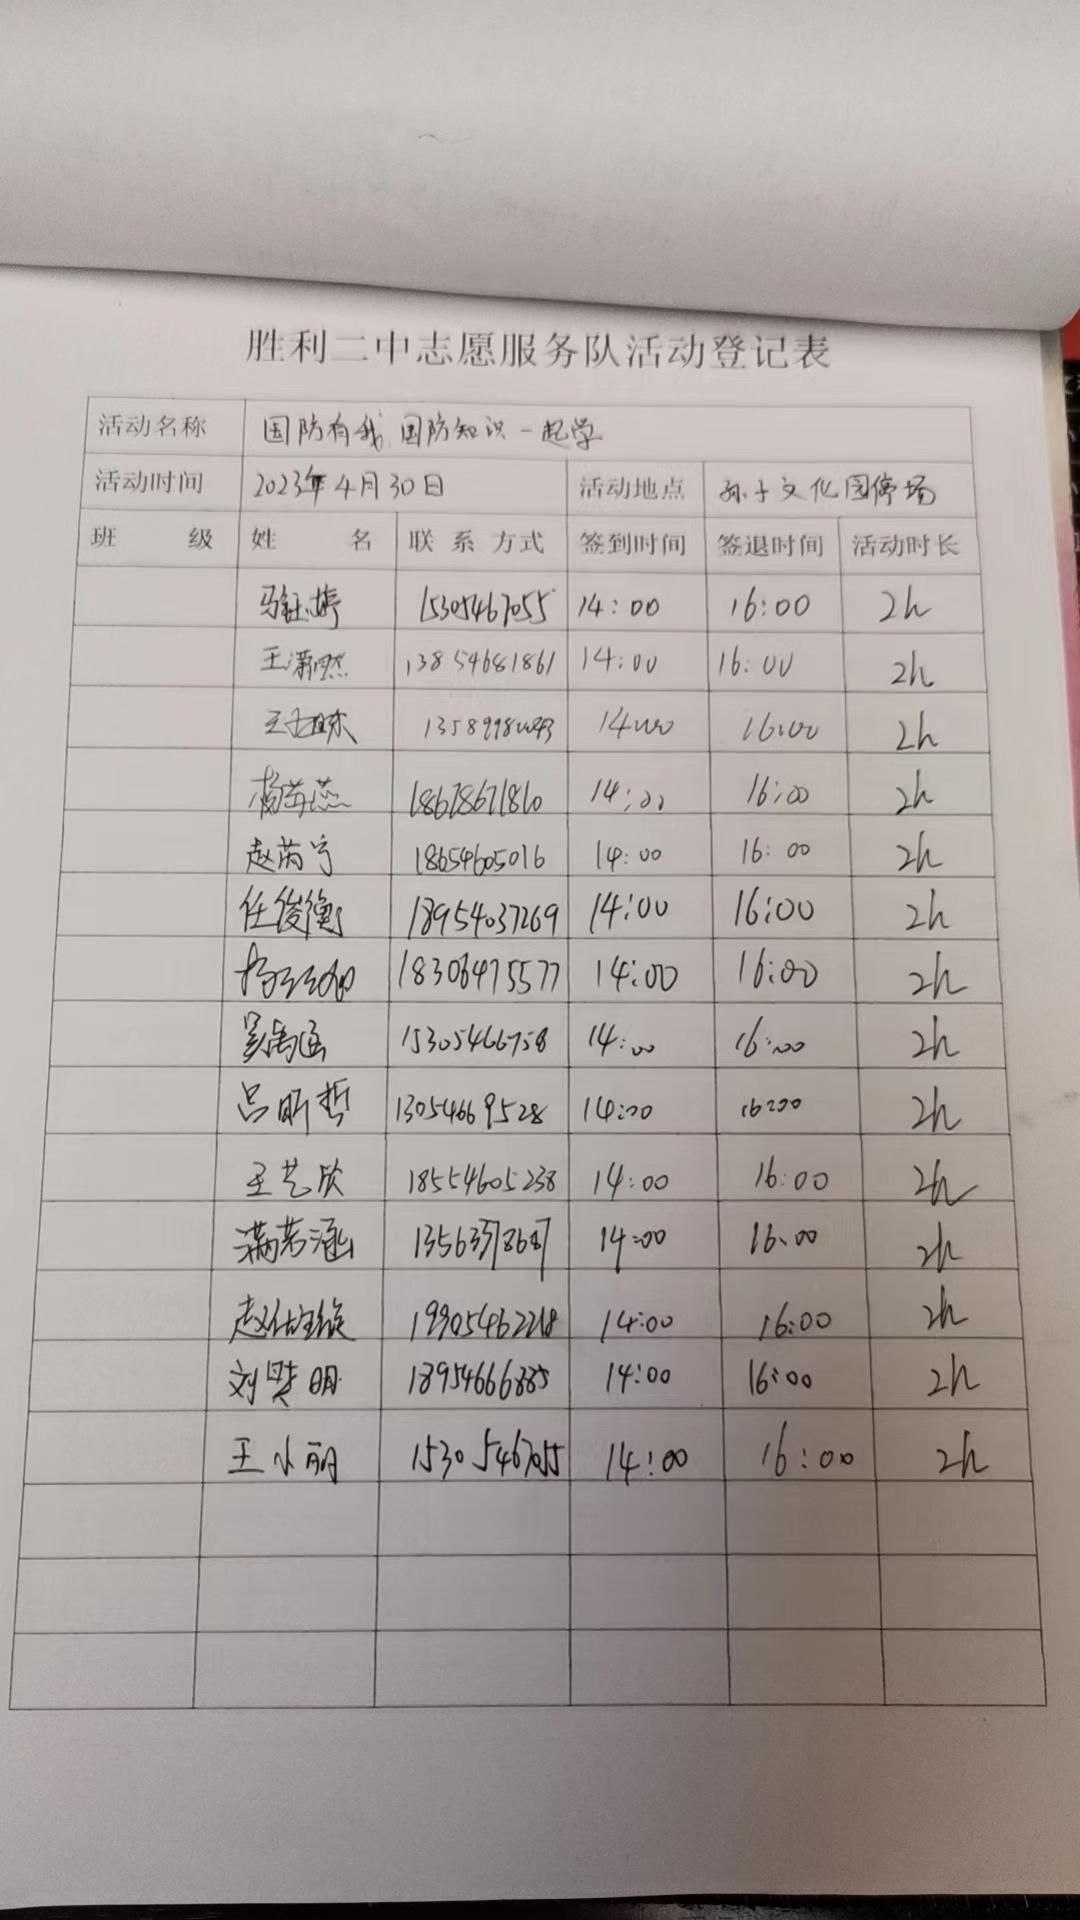 胜利二中志愿服务队活动登记表
活动名称 国防有我 国防知识一起学
活动时间 2023年4月30日 活动地点 孙子文化园停场
班 级 姓 名 联系方式 签到时间 签退时间 活动时长
马钰婷 15305467055 14:00 16:00 2h
王潇然 13854681861 14:00 16:00 2h
14:00 16:00 2h
杨若燕 18678671810 14:00 16:00 2h
赵芮宁 18654605016 14:00 16:00 2h
任俊衡 18954037269 14:00 16:00 2h
18306475577 14:00 16:00 2h
吴禹涵 15305466758 14:00 16:00 2h
吕昕哲 13054669528 14:00 16:00 2h
王艺欣 18554605238 14:00 16:00 2h
满若涵 14:00 16:00 2h
赵 19905462218 14:00 16:00 2h
刘 明 18954666885 14:00 16:00 2h
王小丽 15305467055 14:00 16:00 2h